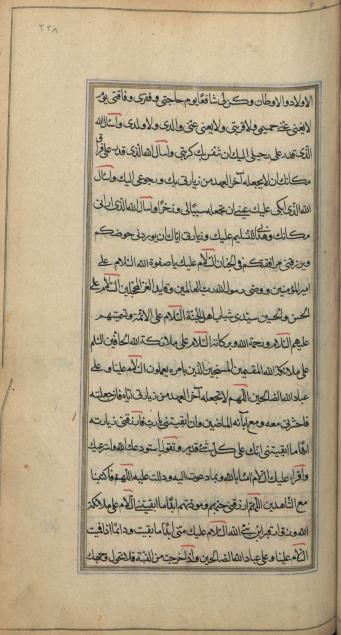 ٢٢٨
الاولاد والاوطان وكن لى شافعًا يوم حاجتى وفقرى وفاقتى يوم
لا يغنى عنى حميمى ولا قريبى ولا يغنى عنى والدى ولا ولدى واسأل الله
الذى قدر على رحيلى اليك ان ينفس بك كربتى واسأل الله الذى قدر على فراق
مكانك ان لا يجعله آخر العهد من زيارتى بك ورجوعى اليك واسأل
الله الذى ابكى عليك عينى ان يجعله سببًا لى وذخرًا واسأل الله الذى ارانى
مكانك وهدانى للتسليم عليك وزيارتى اياك ان يوردنى حوضكم
ويرزقنى مرافقتكم فى الجنان السلام عليك يا صفوة الله السلام على
امير المؤمنين ووصى رسول رب العالمين وقايد الغر المحجلين السلام على
الحسن والحسين سيدى شباب اهل الجنة السلام على الائمة وتسميتهم
عليهم السلام ورحمة الله وبركاته السلام على ملائكة الله الحافين السلم
على ملائكة الله المقيمين المسبحين الذين بامره يعملون السلام علينا وعلى
عباد الله الصالحين اللهم لا تجعله آخر العهد من زيارتى اياه فان جعلته
فاحشرنى معه ومع آبائه الماضين وان ابقيتنى يا رب فارزقنى زيارته
ابدًا ما ابقيتنى انك على كل شىء قدير وتقول استودعك الله واسترعيك
واقرأ عليك السلام امنا بالله وبما دعوت اليه ودللت عليه اللهم فاكتبنا
مع الشاهدين اللهم ارزقنى حبهم ومودتهم ابدًا ما ابقيتنى السلام على ملائكة
الله وزوار قبر ابن نبى الله السلام عليك منى ابدًا ما بقيت ودائمًا اذا فنيت
السلام علينا وعلى عباد الله الصالحين واذا خرجت من القبة فلا تحول وجهك